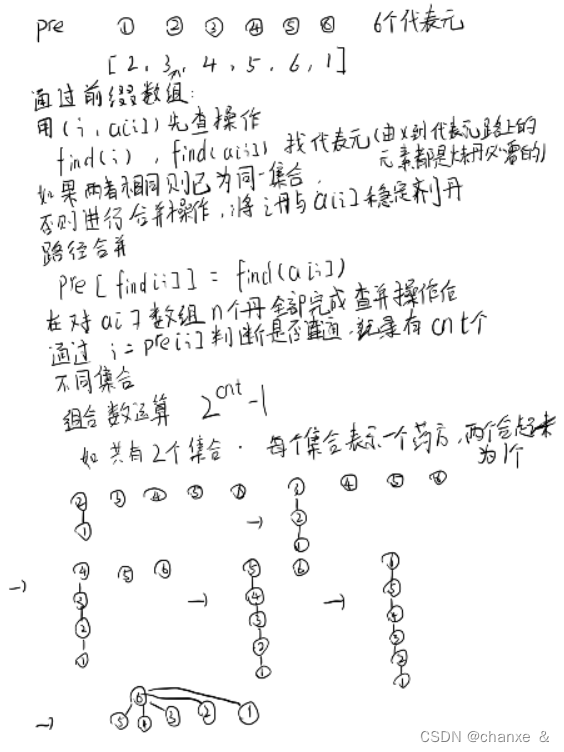 pre ① ② ③ ④ ⑤ ⑥ 6个代表元
[2, 3, 4, 5, 6, 1]
通过前缀数组:
用(i, a[i])先查操作
find(i), find(a[i]) 找代表元(由x到代表元路上的
元素都是炼丹必需的)
如果两者相同则已为同一集合,
否则进行合并操作, 将i丹与a[i]稳定剂丹
路径合并
pre[find[i]] = find(a[i])
在对a[i]数组n个丹全部完成查并操作后
通过 i = pre[i] 判断是否连通, 记录有cnt个
不同集合
组合数运算 2^cnt -1
如共有2个集合. 每个集合表示一个药方, 两个合起来
为1个
② ③ ④ ⑤ ⑥ → ③ ④ ⑤ ⑥
① ② ①
→ ④ ⑤ ⑥ → ⑤ ⑥ → ⑥
③ ② ① ④ ③ ② ① ⑤ ④ ③ ② ①
→ ⑥
⑤ ④ ③ ② ①
CSDN @chanxe &